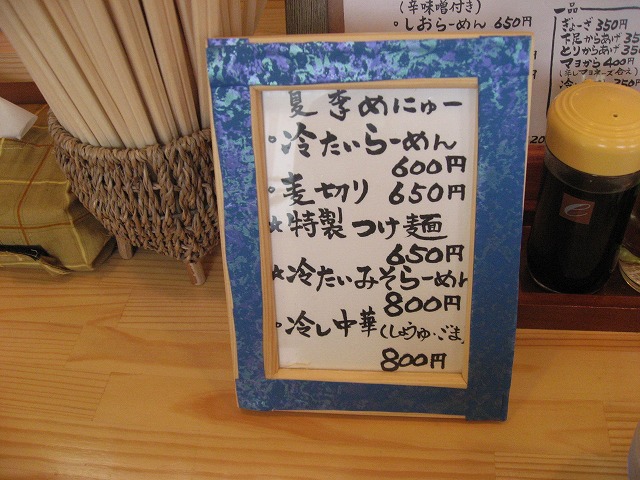 (辛味噌付き)
・しおらーめん 650円
一品
ぎょーざ 350円
下足からあげ 35
とりからあげ 35
マヨから 400円
夏季めにゅー
・冷たいらーめん
600円
・麦切り 650円
★特製つけ麺
650円
★冷たいみそらーめん
800円
・冷し中華(しょうゆ・ごま)
800円